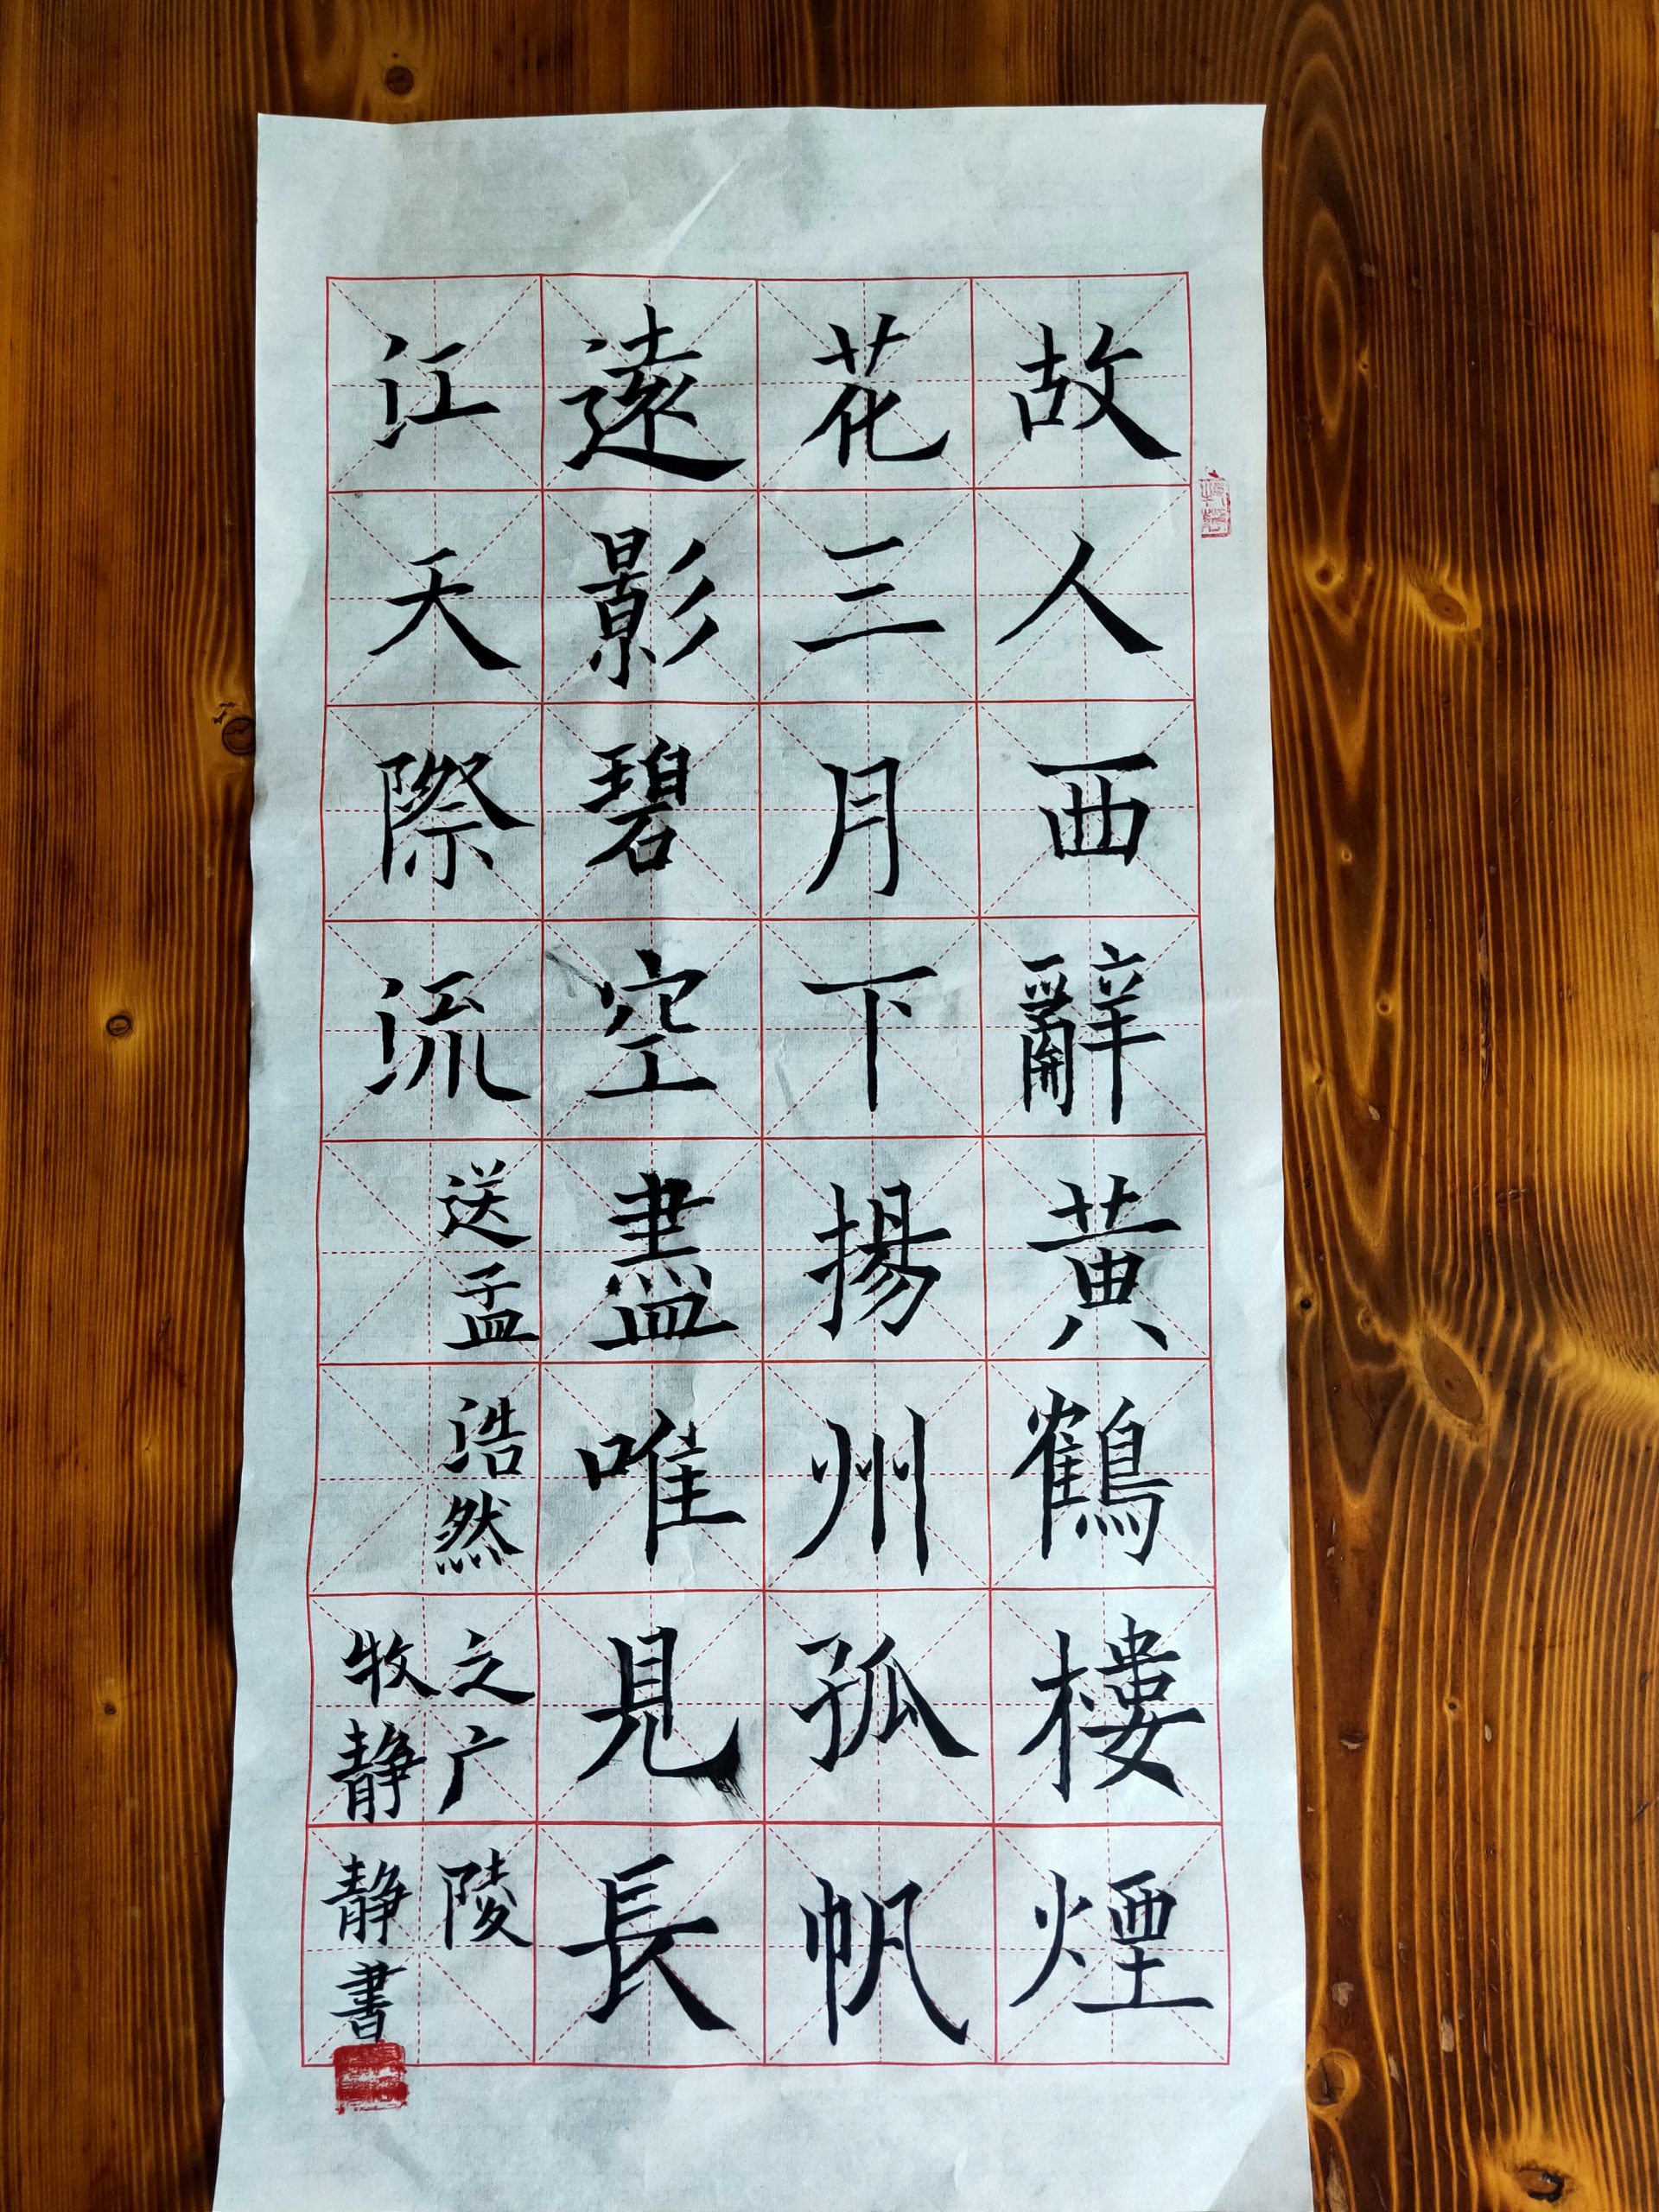 故人西辭黃鶴樓煙
花三月下揚州孤帆
遠影碧空盡唯見長
江天際流
送孟浩然之广陵
牧静静書